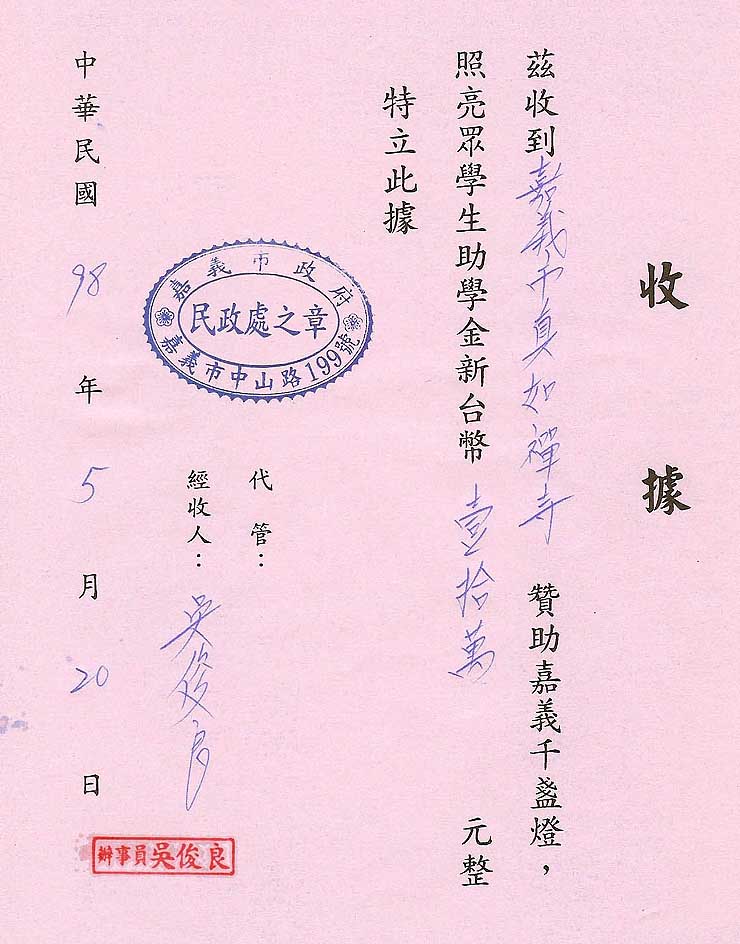 收據
茲收到嘉義市真如禪寺 贊助嘉義千盞燈，
照亮眾學生助學金新台幣 壹拾萬 元整
特立此據
嘉義市政府
民政處之章
嘉義市中山路199號
代管：
經收人：吳俊良
中華民國 98 年 5 月 20 日
辦事員吳俊良